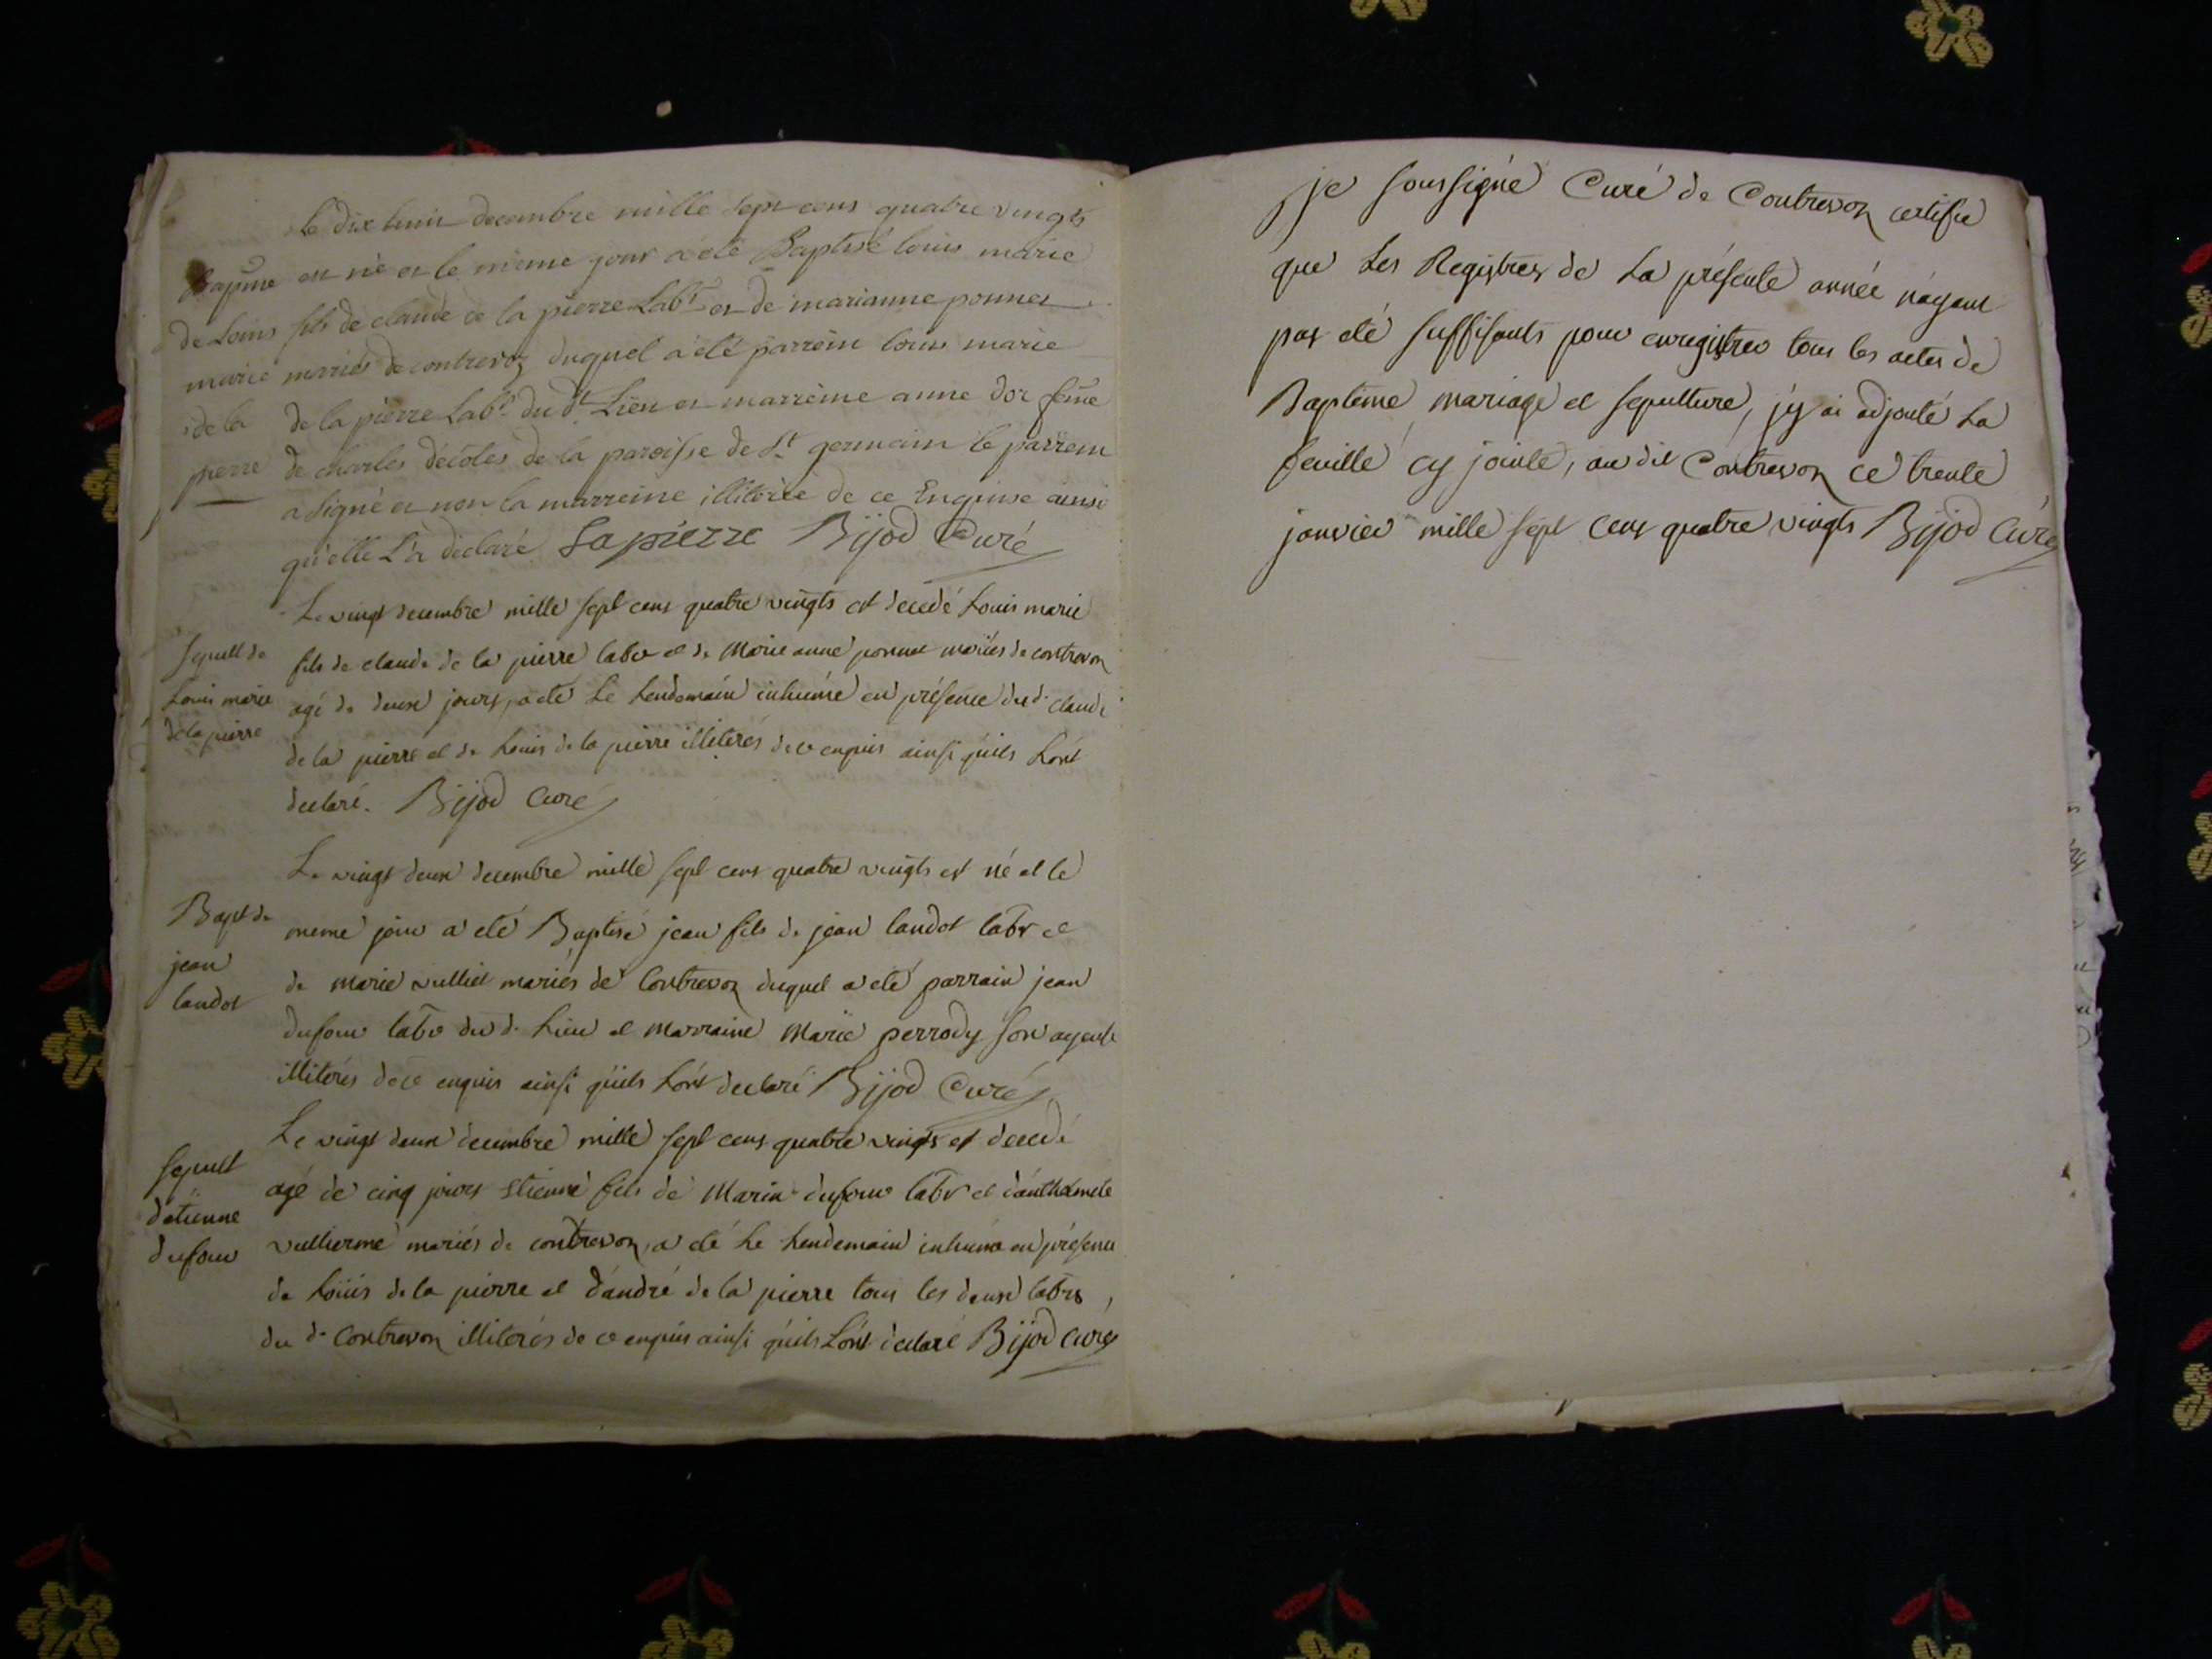 Le dix huit decembre mille sept cens quatre vingts
Baptme est né et le méme jour a été Baptisé louis marie
de Louis fils de claude de la pierre Labr et de marianne ponnet
marie mariés de contrevoz duquel a été parrein louis marie
de la de la pierre Labr du dt Lieu et marreine anne dor feme
pierre de charles décotes de la paroisse de St germain le parrein
a signé et non la marreine illitérée de ce Enquise ainsi
qu'elle L'a déclaré Lapierre Bijod Curé
Le vingt decembre mille sept cens quatre vingts est decedé Louis marie
sepult de fils de claude de la pierre labr et de Marie anne ponnet mariés de contrevoz
Louis marie agé de deux jours, a eté Le Lendemain inhumé en présence dud. claude
dela pierre de la pierre et de Louis de la pierre illiterés de ce enquis ainsi qu'ils L'ont
declaré. Bijod Curé
Le vingt deux decembre mille sept cens quatre vingts est né et le
Bapt de meme jour a eté Baptisé jean fils de jean landot labr et
jean de Marie vulliet mariés de Contrevoz duquel a eté parrain jean
landot dufour labr du d. Lieu et Marraine Marie perrody son ayeule
illiterés de ce enquis ainsi qu'ils L'ont declaré Bijod Curé
Le vingt deux decembre mille sept cens quatre vingts est decedé
sepult agé de cinq jours Etienne fils de Marin dufour labr et d'anthelmete
d'etienne vullierme mariés de contrevoz, a eté Le Lendemain inhumé en présence
dufour de Loüis de la pierre et d'andré de la pierre tous les deux labrs
du d. Contrevoz illiterés de ce enquis ainsi qu'ils L'ont declaré Bijod Curé
je soussigné Curé de Contrevoz certifie
que Les Registres de La présente année n'ayant
pas eté suffisants pour enregistrer tous les actes de
Baptême, mariage et sepulture, j'y ai adjouté La
feuille cy jointe, au dit Contrevoz ce trente
janvier mille sept cens quatre vingts Bijod Curé